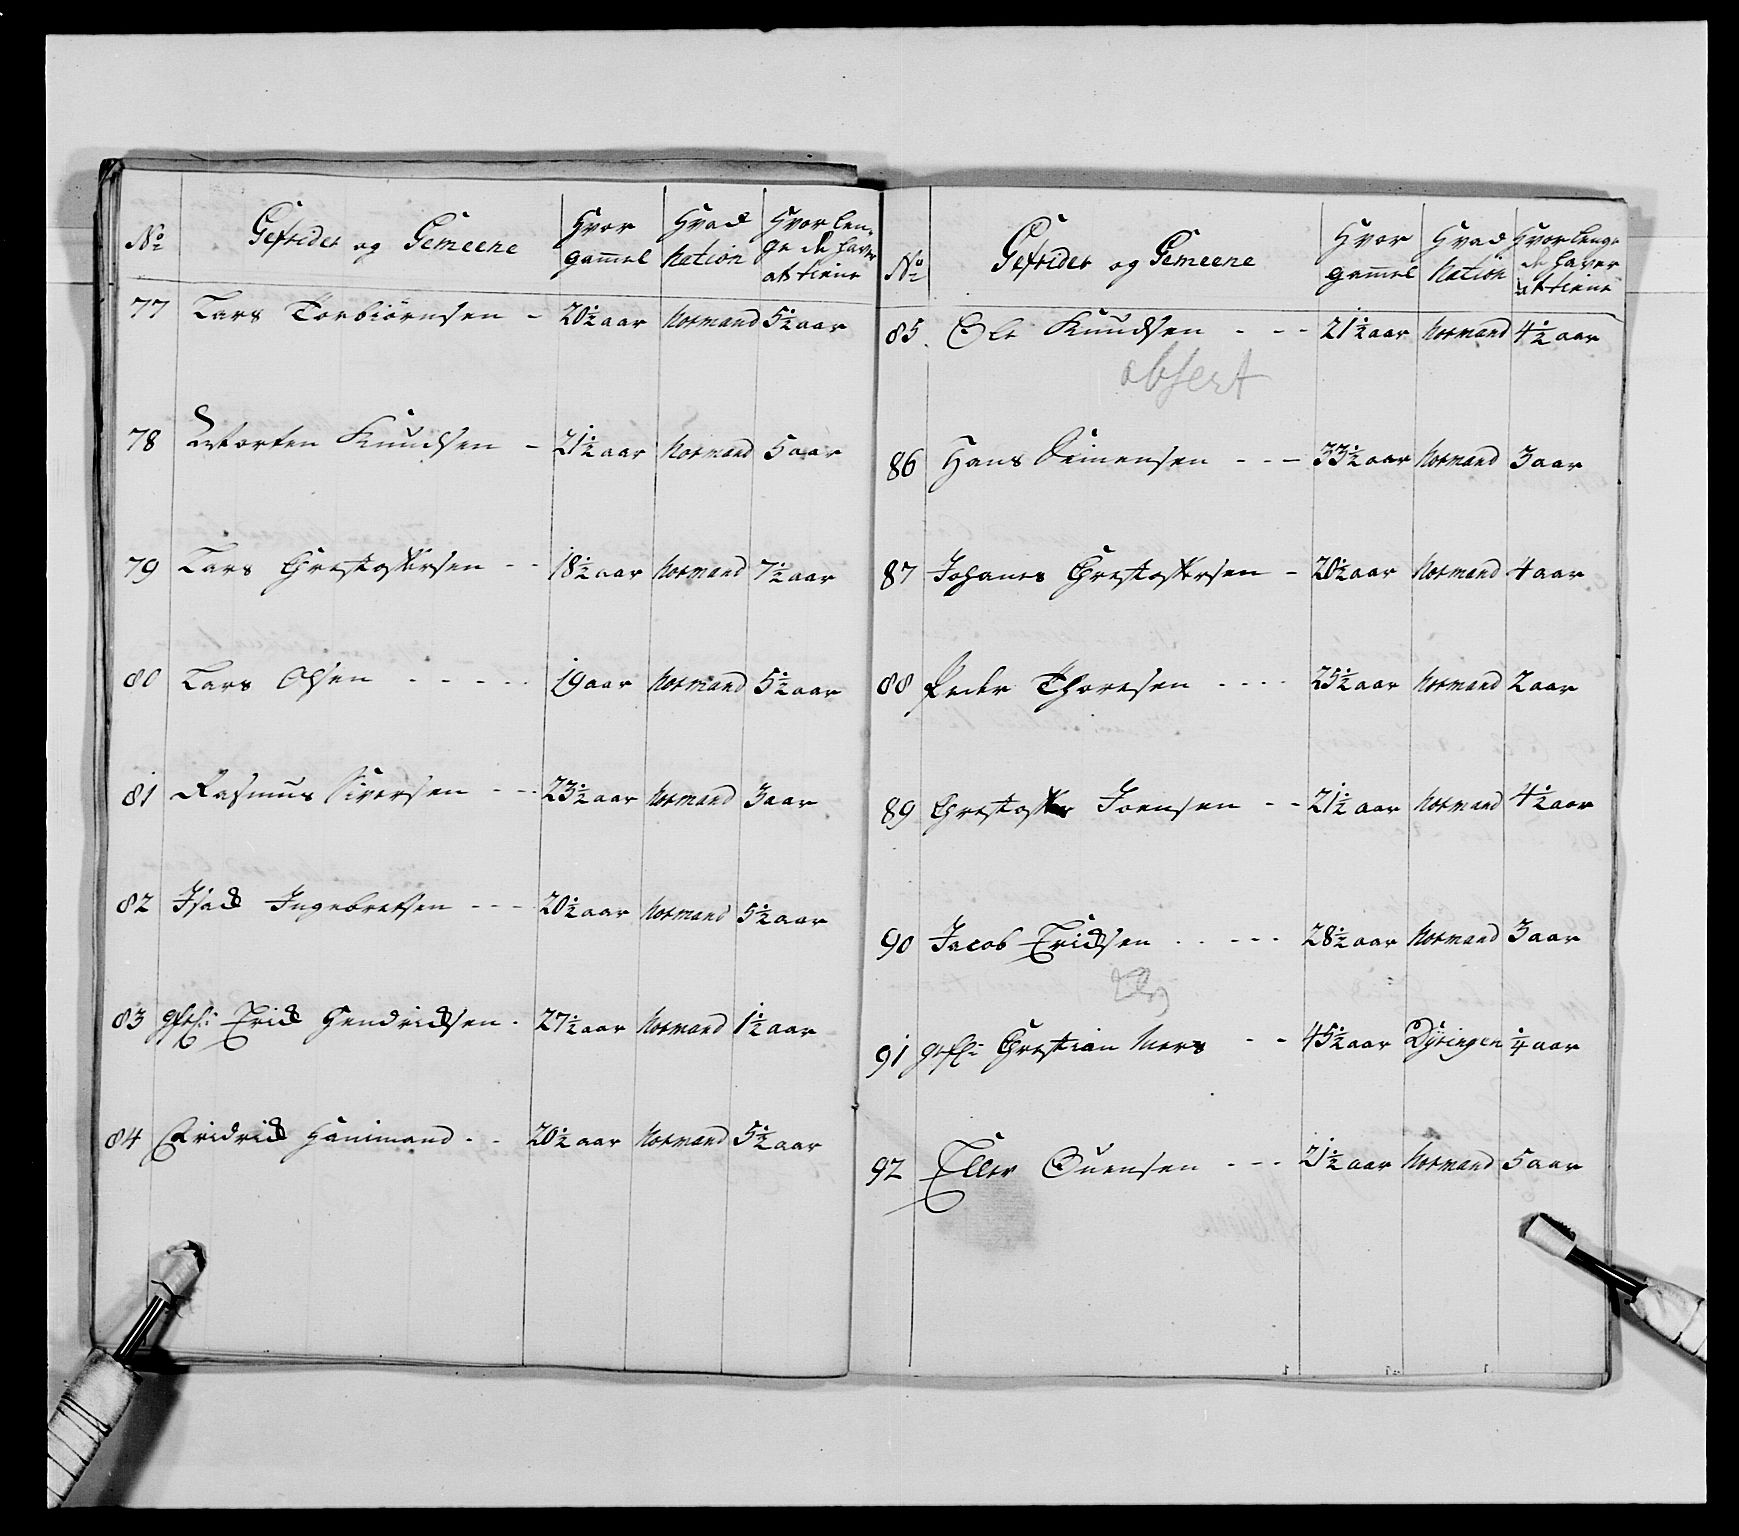 No Gefreider og Gemeene Hvor gammel Hvad Nation Hvor lenge de haver at tiene
77 Lars Torbiörnsen - 20½ aar Normand 5½ aar
78 Morten Knudsen - 21½ aar Normand 5 aar
79 Lars Chrestophersen - - 18½ aar Normand 7½ aar
80 Lars Olsen - - - - - 19 aar Normand 5½ aar
81 Rasmus Siversen - - - 23½ aar Normand 3 aar
82 Isach Ingebretsen - - - 20½ aar Normand 5½ aar
83 Erich Hendrichsen - 27½ aar Normand 1½ aar
84 Fridrich Hanimand - - 20½ aar Normand 5½ aar
No Gefreider og Gemeene Hvor gammel Hvad Nation Hvor lenge de haver at tiene
85 Ole Knudsen - - - 21½ aar Normand 4½ aar
absent
86 Hans Simensen - - - 33½ aar Normand 3 aar
87 Johanes Chrestophersen - 20½ aar Normand 4 aar
88 Peder Thoresen - - - - 25½ aar Normand 2 aar
89 Chrestopher Joensen - - 21½ aar Normand 4½ aar
90 Jacob Erichsen - - - - - 28½ aar Normand 3 aar
91 Chrestian Mers - - 45½ aar Dÿringen ¼ aar
92 Eller Ouensen - - - 21½ aar Normand 5 aar